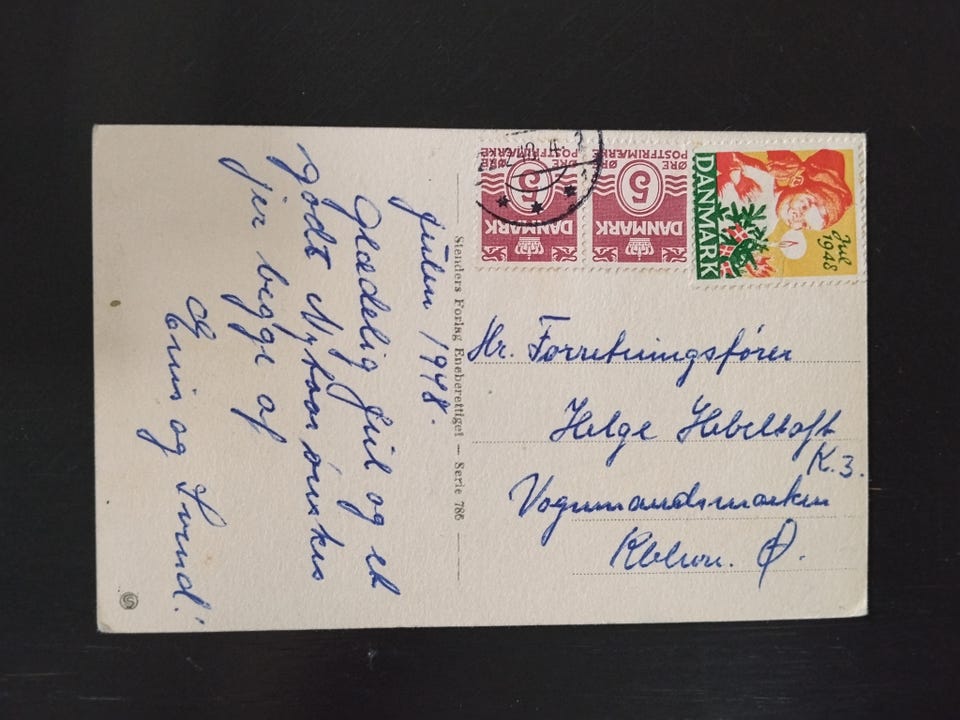 Julen 1948.
Glædelig Jul og et
godt Nytaar ønskes
jer begge af
Svend.
Stenders Forlag Eneberettiget — Serie 786
DANMARK
5
ØRE ØRE
POSTFRIMÆRKE
DANMARK
5
ØRE ØRE
POSTFRIMÆRKE
DANMARK
Jul
1948
Hr. Forretningsfører
Helge Hebeltoft
K.3.
Vognmandsmarken
Kbhvn. Ø.